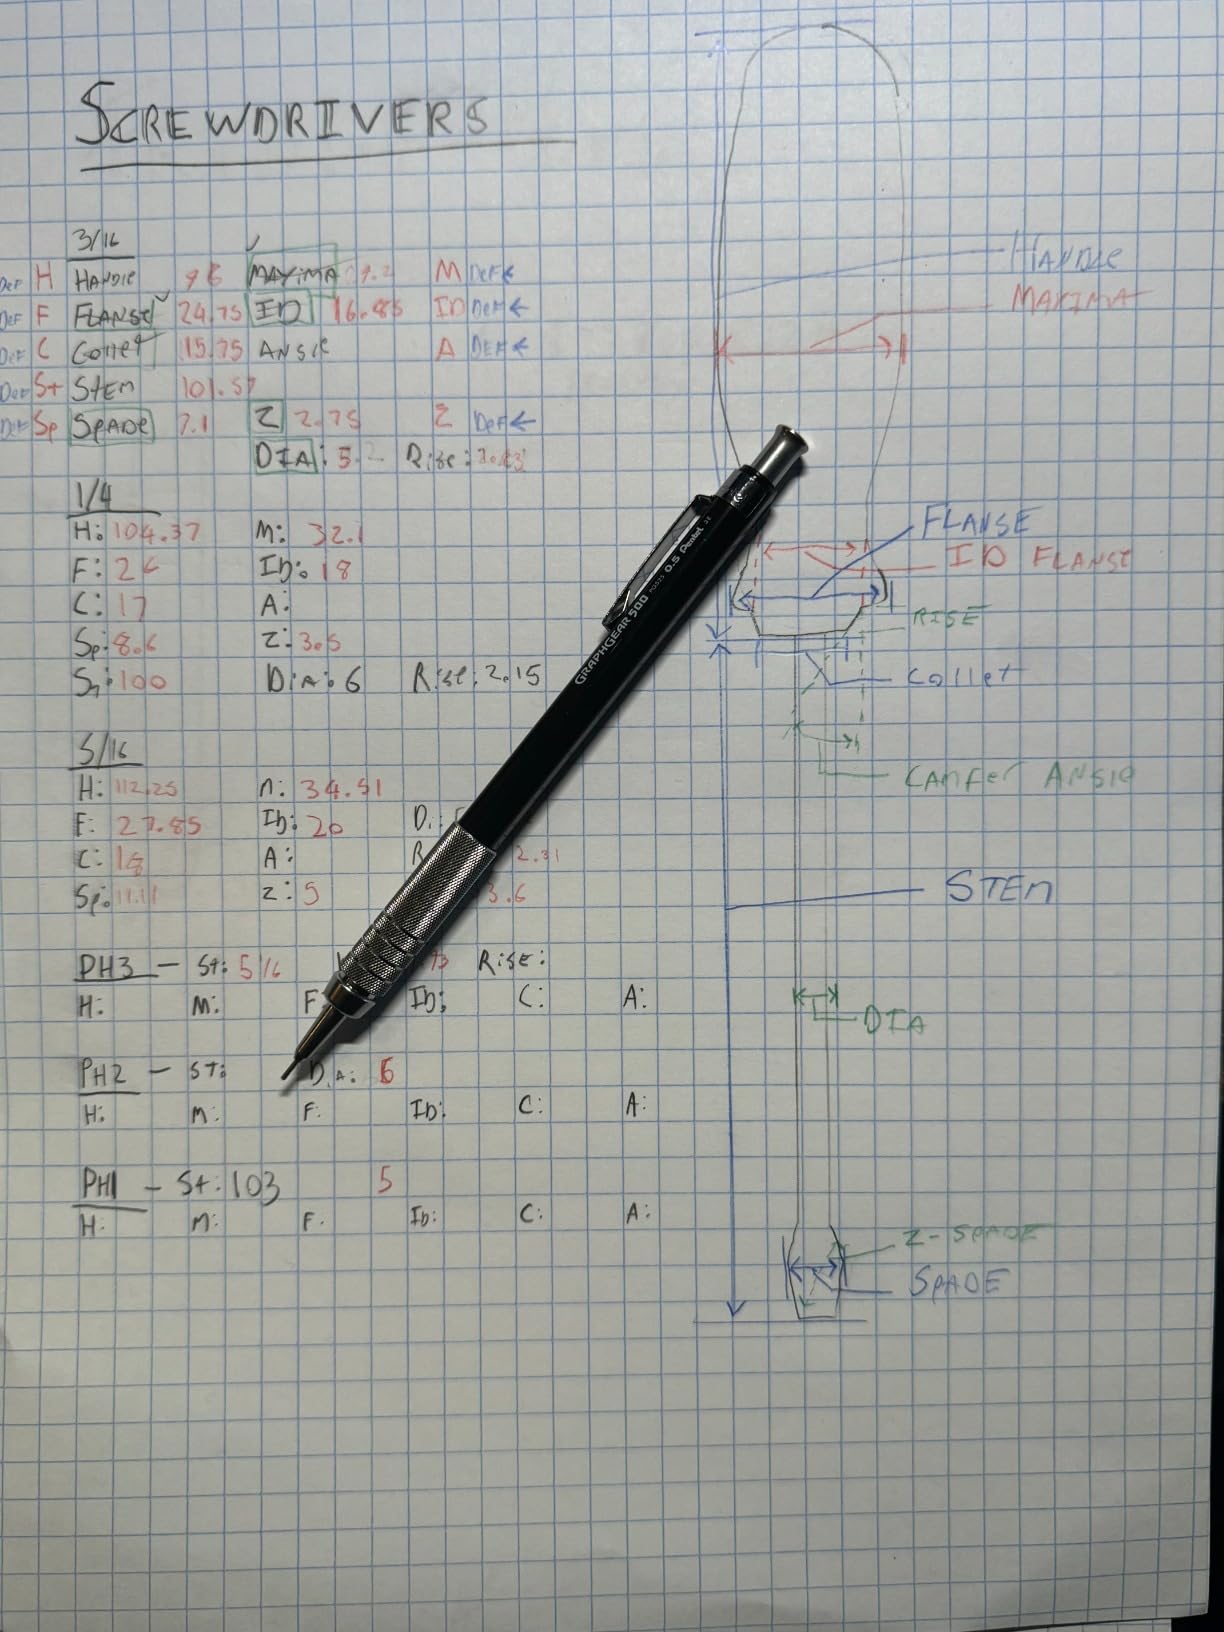 SCREWDRIVERS
3/16
Def H HANDLE 96 MAXIMA M DEF←
Def F FLANGE 24.75 ID 16.85 ID DEF←
Def C Collet 15.75 ANGLE A DEF←
Def St STEM 101.57
Def Sp SPADE 7.1 Z 2.75 Z DEF←
DIA: 5.2 Rise:
1/4
H: 104.37 M: 32.1
F: 26 ID: 18
C: 17 A:
Sp: 8.6 Z: 3.5
100 DIA: 6 Rise: 2.15
5/16
H: 112.25 M: 34.51
F: 27.85 ID: 20
C: 18 A: 2.31
Sp: 11.11 Z: 5 3.6
PH3 – St: 5/16 Rise:
H: M: F: ID: C: A:
PH2 – ST: DIA: 6
H: M: F: ID: C: A:
PH1 – St: 103 5
H: M: F: ID: C: A:
HANDLE
MAXIMA
FLANGE
ID FLANGE
RISE
Collet
CAMFER ANGLE
STEM
DIA
Z-SPADE
SPADE
GRAPHGEAR 500 0.5 Pentel